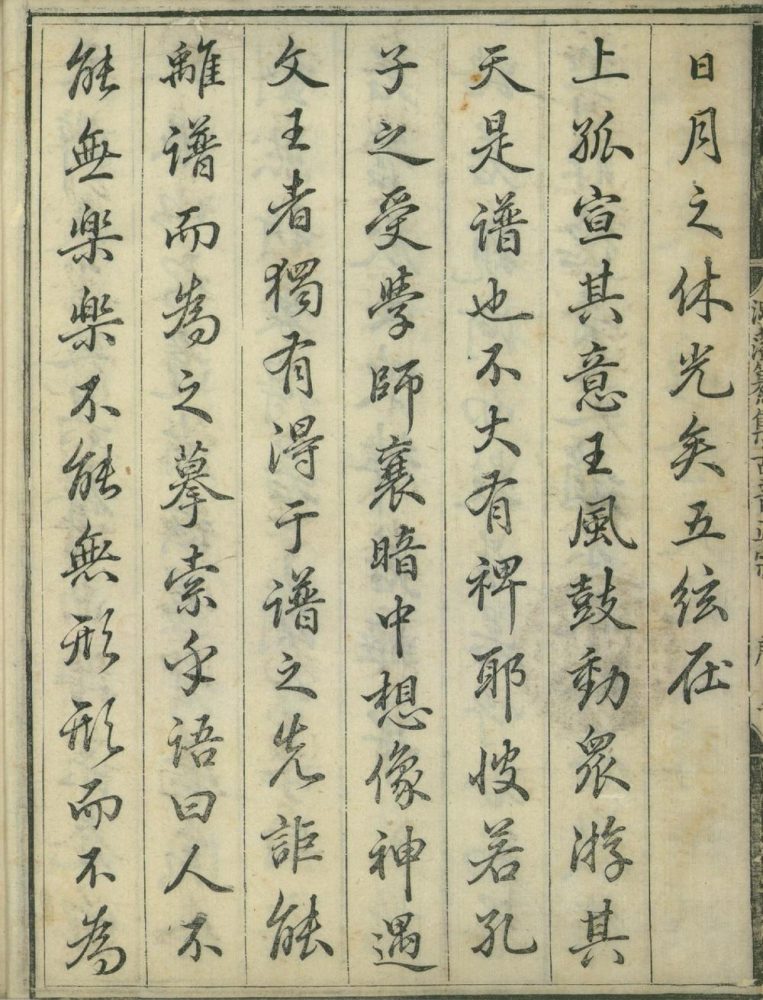 日月之休光矣五絃在
上孤宣其意王風鼓動眾游其
天是譜也不大有裨耶嫂若孔
子之受學師襄暗中想像神遇
文王者獨有淂于譜之先詎能
離譜而為之摹索乎語曰人不
能無樂樂不能無形形而不為